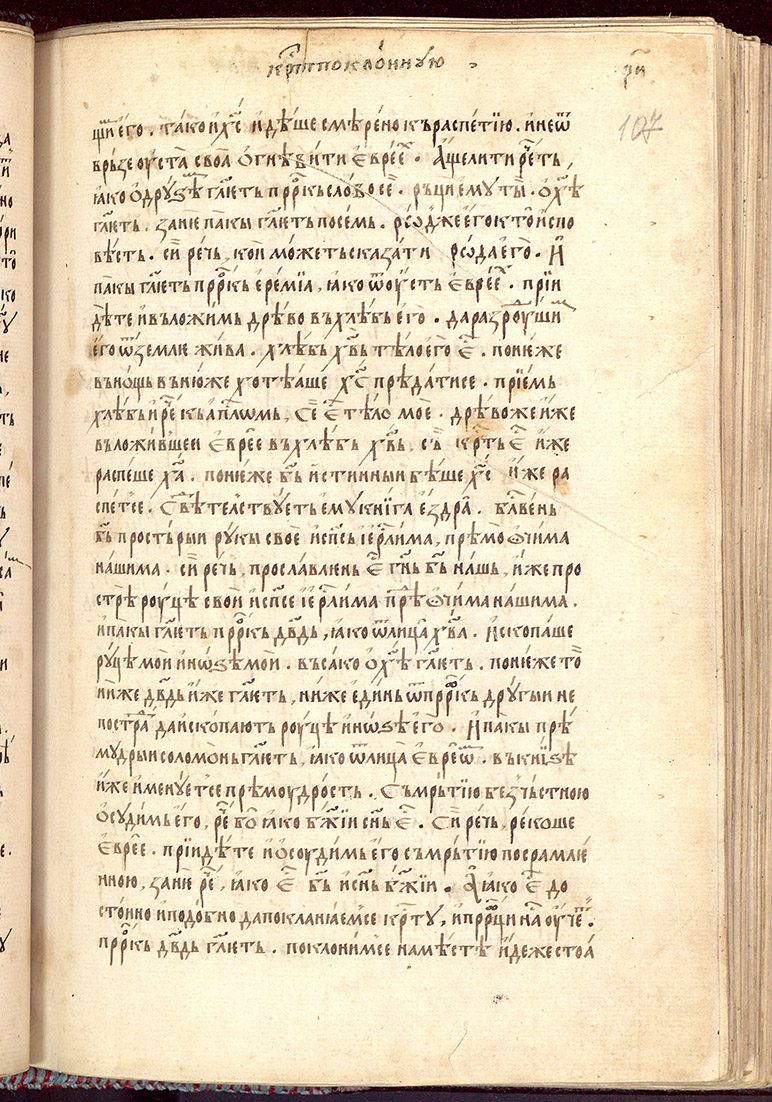 крⷭ҇топоклонную
р҃и
107
щи его . тако и хс҃ идѣше смѣрено къ распетїю . и не ѿ
врьзе оуста своꙗ ѡгнѣвити еврее . Аще ли ти рѣть
ꙗко ѡ друзѣ гл҃еть прⷪ҇ркь слово се . рьци ему ты . ѡ х҃ѣ
гл҃еть . зание пакы гл҃еть по семь . рѡдже его кто испо
вѣсть . сїи речь , кои можеть сказати рѡда его . И
пакы гл҃еть прⷪ҇ркь еремїа , ꙗко ѿ оусть еврее . прїи
дѣте и въложимь дрѣво въ хлѣбь его . да разроушим
его ѿ землѥ жива . хлѣбь хв҃ь тѣло его еⷭ҇ . понеже
въ нощь въ нюже хотѣаше хс҃ прѣдатисе . прїемь
хлѣбь и реⷱ҇ къ апⷭ҇лѡмь , се еⷭ҇ тѣло мое . дрѣво же иже
въложившеи еврее въ хлѣбь хв҃ь , съ крⷭ҇ть еⷭ҇ иже
распеше х҃а . понеже бь҃ истинныи бѣше хс҃ иже ра
спетсе . Свѣтелствуеть ему книга ездра . бл҃вень
бь҃ простьрыи рукы свое и сп҃сь іерⷭ҇лима , прѣмо ѡчима
нашима . сїи речь , прославлѥнь еⷭ҇ гн҃ь бь҃ нашь , иже про
стрѣ роуцѣ свои и сп҃се іерⷭ҇лима прѣⷣ ѡчима нашима .
и пакы гл҃еть прⷪ҇ркь дв҃дь , ꙗко ѿ лица хв҃а . ископаше
руцѣ мои и нѡзѣ мои . въсако ѡ х҃ѣ гл҃еть . понеже то
ниже дв҃дь иже гл҃еть , ниже единь ѿ прⷪ҇ркь другыи не
пострⷣа да ископають роуцѣ и нѡзѣ его . И пакы прѣ
мудрыи соломѡнь гл҃еть , ꙗко ѿ лица евреѡм . въ книзѣ
иже именуетсе прѣмоудрость . Съмрьтїю безчьстною
ѡсудимь его , реⷱ҇ бо ꙗко бж҃їи сн҃ь еⷭ҇ . Сїи речь , рекоше
еврее . прїидѣте и ѡсоудимь его съмрьтїю посрамлѥ
нною , зание реⷱ҇ , ꙗко еⷭ҇ бь҃ и сн҃ь бж҃їи . А ꙗко еⷭ҇ до
стоино и подобно да покланꙗемсе крⷭ҇ту , и прⷪ҇рци на оучет .
прⷪ҇ркь дв҃дь гл҃еть . поклонимсе на мѣстѣ идеже стоꙗ